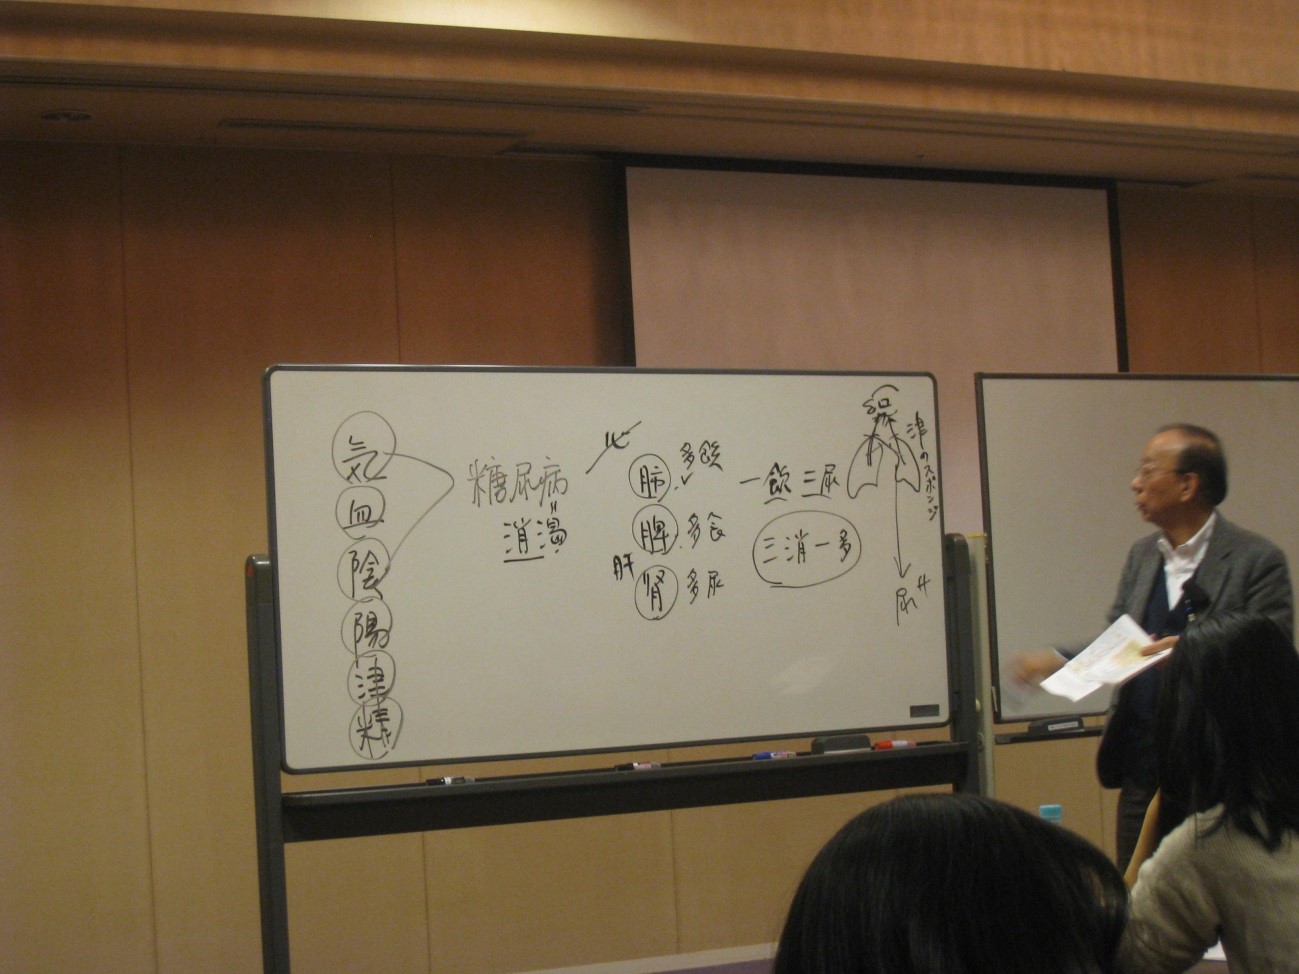 気
血
陰
陽
津
精
糖尿病
消渇
肺 多飲
脾 多食
肝
腎 多尿
一飲三尿
三消一多
津のスポンジ
尿